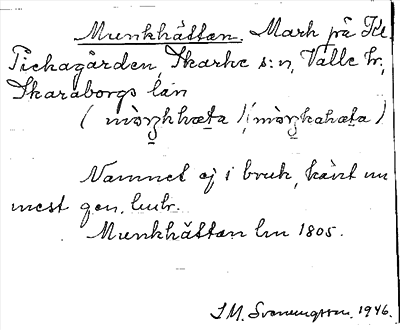 Munkhättan. Mark på
Pickagården, Skarke s:n, Valle hd,
Skaraborgs län
( mòŋkhæta )(mòŋkahæta )
Namnet ej i bruk, känt nu
mest gen. lmtr.
Munkhättan lm 1805.
J M. Svenungsson. 1946.